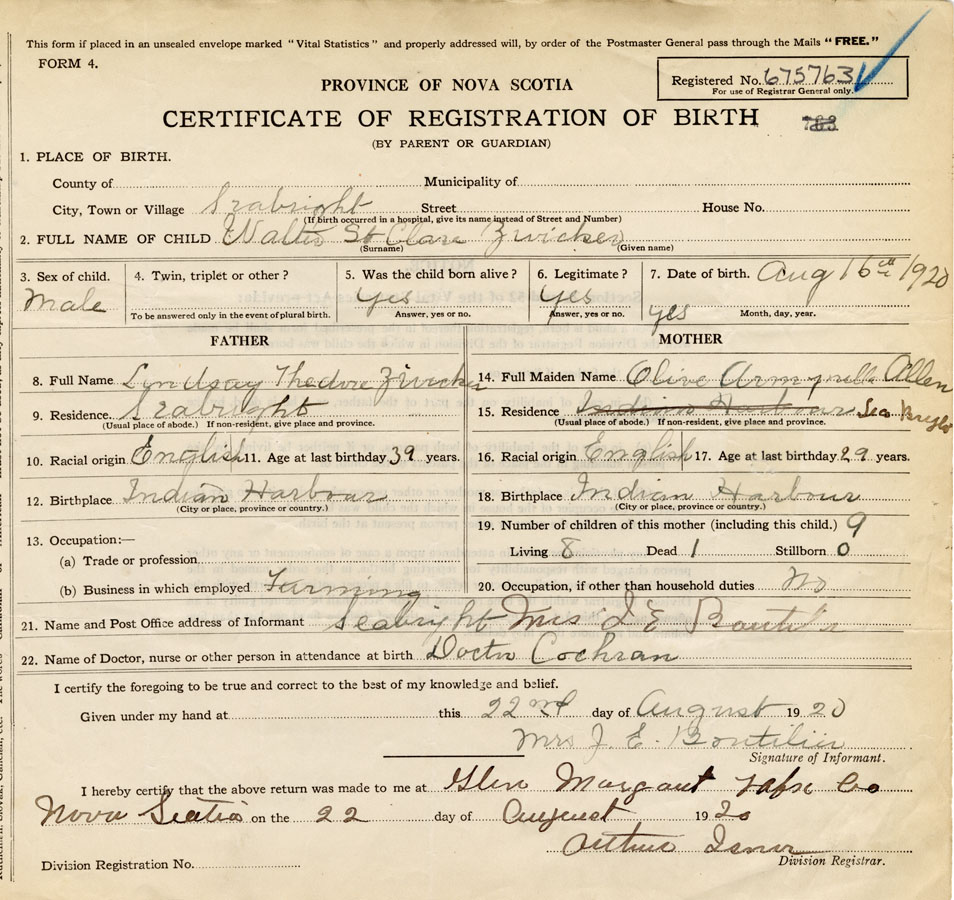 This form if placed in an unsealed envelope marked "Vital Statistics" and properly addressed will, by order of the Postmaster General pass through the Mails "FREE."
FORM 4.
Registered No. 675763
For use of Registrar General only.
PROVINCE OF NOVA SCOTIA
CERTIFICATE OF REGISTRATION OF BIRTH
(BY PARENT OR GUARDIAN)
1. PLACE OF BIRTH.
County of Municipality of
City, Town or Village Seabright Street House No.
(If birth occurred in a hospital, give its name instead of Street and Number)
2. FULL NAME OF CHILD Walter St Clare Zwicker
(Surname) (Given name)
3. Sex of child. 4. Twin, triplet or other? 5. Was the child born alive? 6. Legitimate? 7. Date of birth. Aug 16th 1920
Male yes yes yes
To be answered only in the event of plural birth. Answer, yes or no. Answer, yes or no. Month, day, year.
FATHER MOTHER
8. Full Name Lindsay Thedore Zwicker 14. Full Maiden Name Olive Allen
9. Residence. Seabright 15. Residence Indian Harbour Sea Bright
(Usual place of abode.) If non-resident, give place and province. (Usual place of abode.) If non-resident, give place and province.
10. Racial origin English 11. Age at last birthday 39 years. 16. Racial origin English 17. Age at last birthday 29 years.
12. Birthplace Indian Harbour 18. Birthplace Indian Harbour
(City or place, province or country.) (City or place, province or country.)
19. Number of children of this mother (including this child.) 9
13. Occupation:—
Living 8 Dead 1 Stillborn 0
(a) Trade or profession
(b) Business in which employed Farming 20. Occupation, if other than household duties No
21. Name and Post Office address of Informant Seabright Mrs J E Boutilier
22. Name of Doctor, nurse or other person in attendance at birth Doctor Cochran
I certify the foregoing to be true and correct to the best of my knowledge and belief.
Given under my hand at this 22nd day of August 1920
Mrs J. E. Boutilier
Signature of Informant.
I hereby certify that the above return was made to me at Glen Margaret Hafx Co
Nova Scotia on the 22 day of august 1920
Arthur
Division Registration No. Division Registrar.